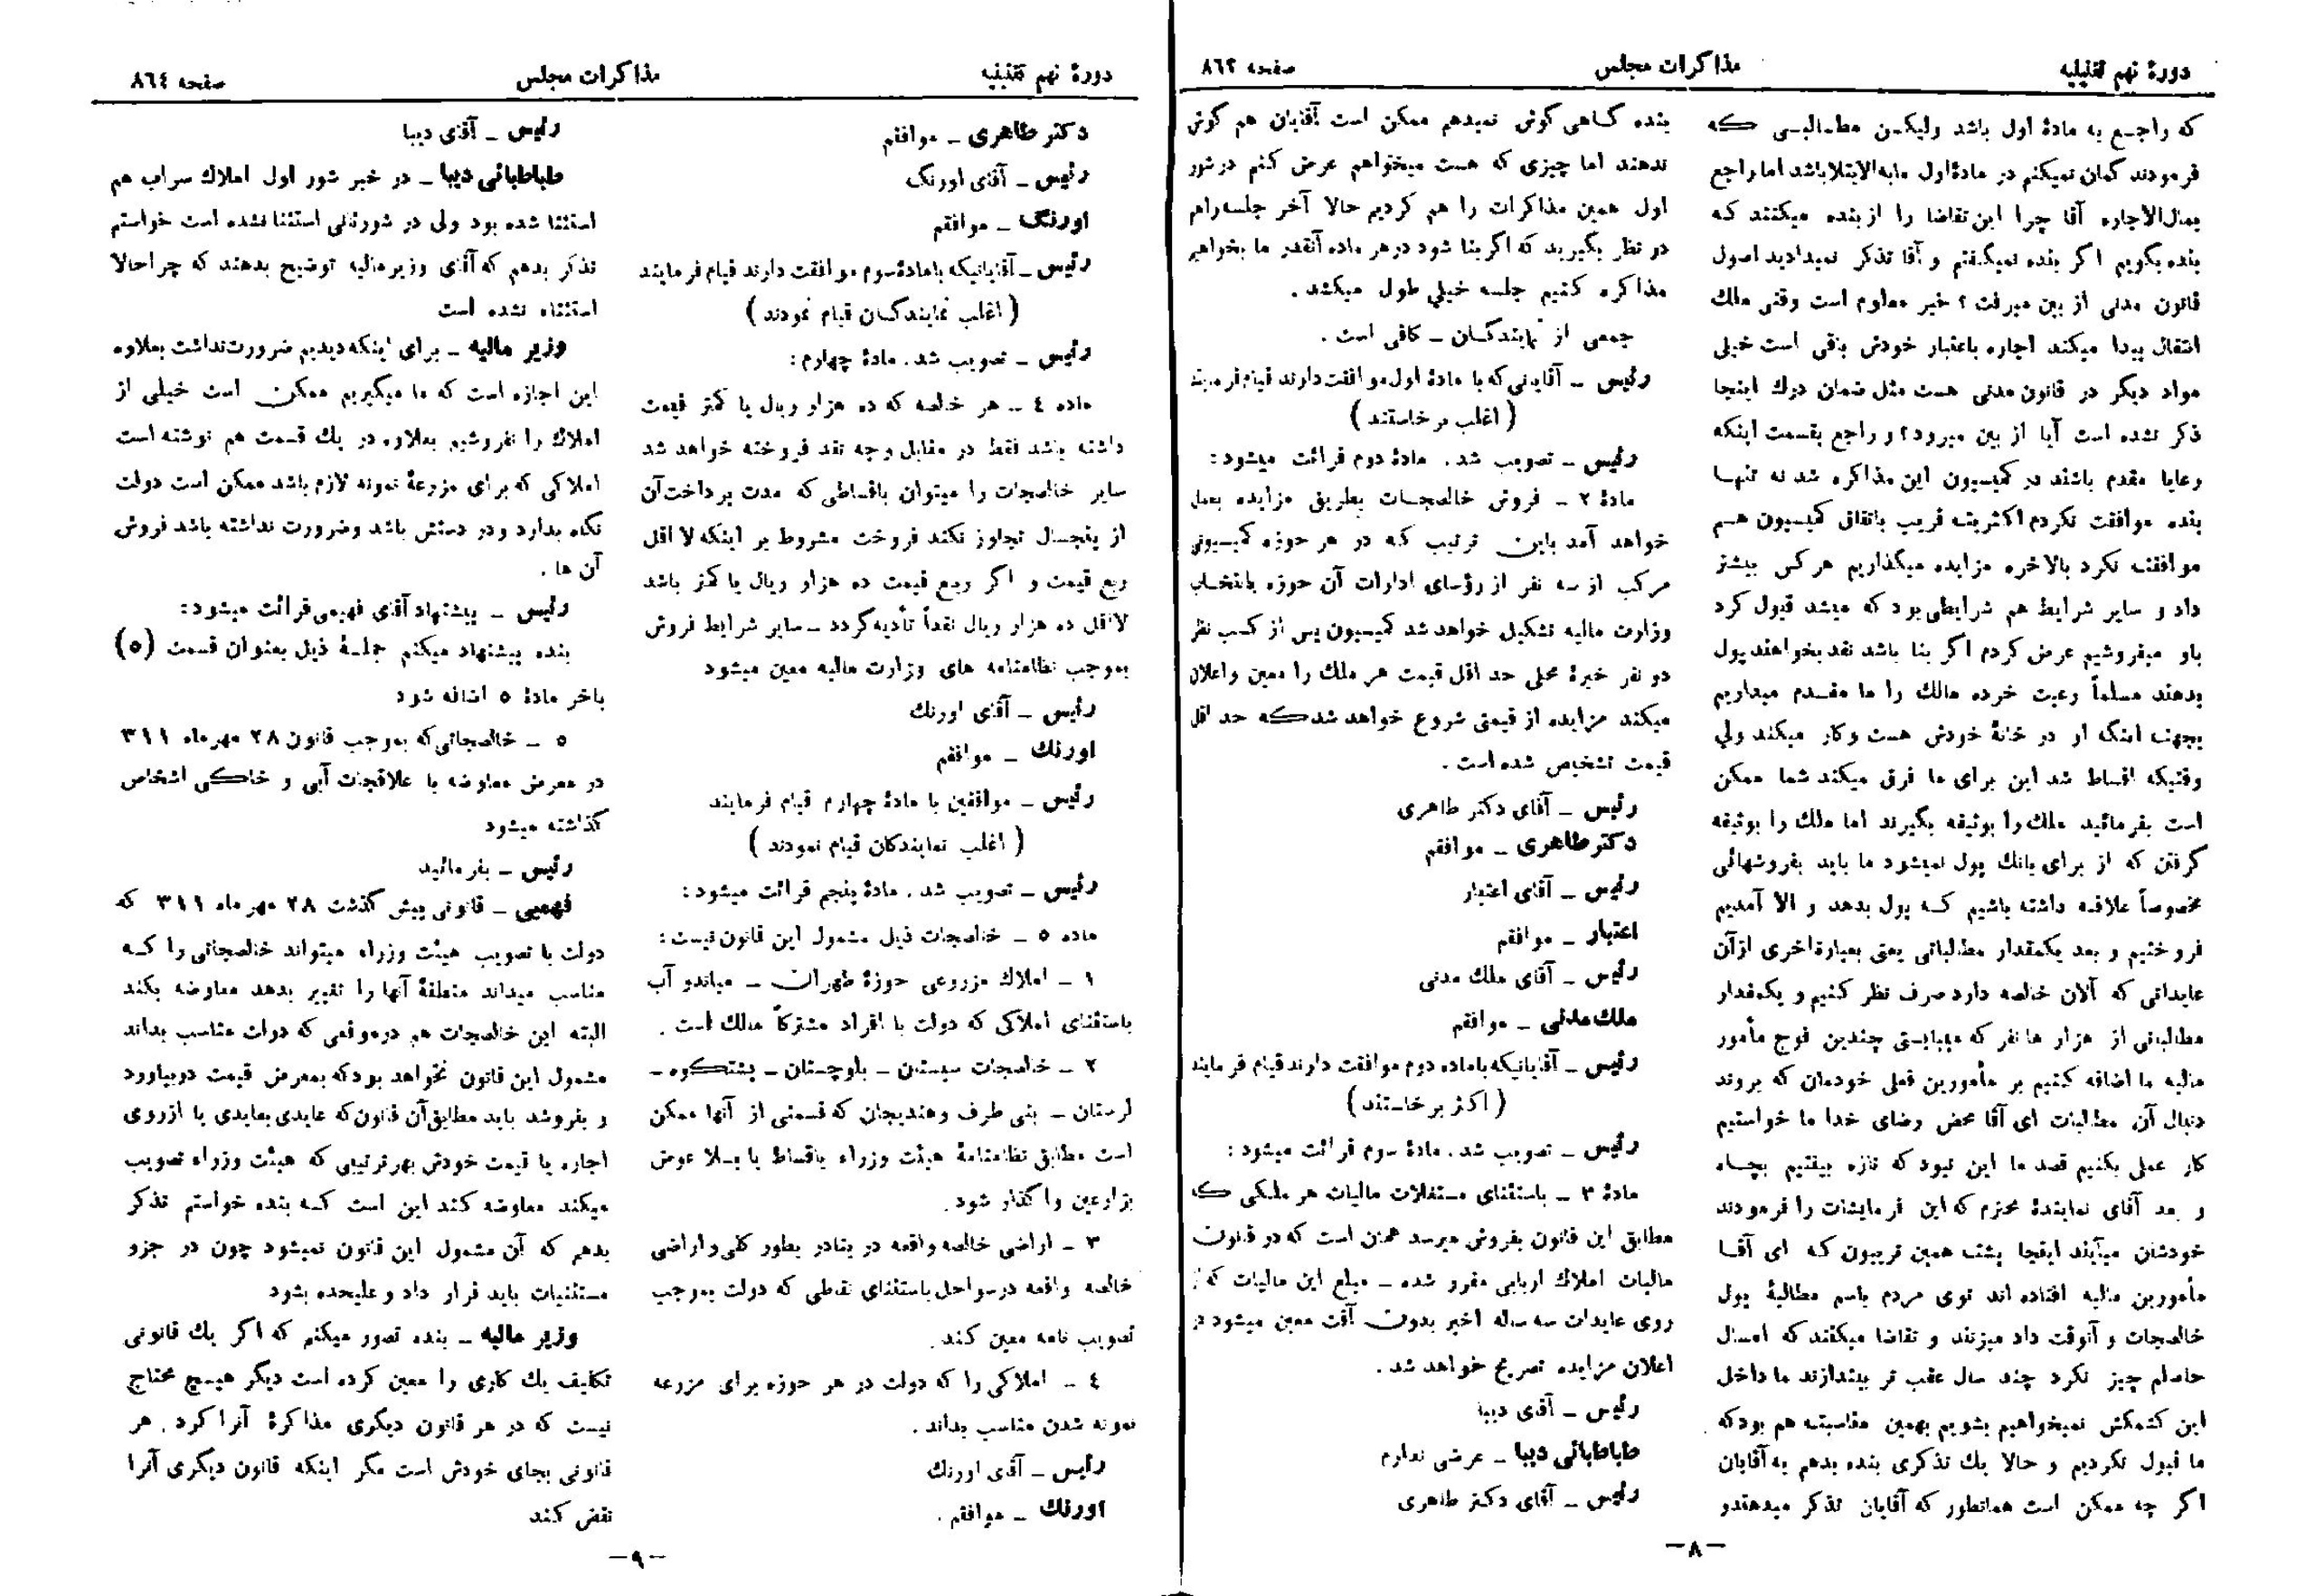 دورهٔ نهم تقنینیه
مذاکرات مجلس
صفحه ۸٦۳
که راجع به مادهٔ اول باشد ولیکن مطالبی که
فرمودند گمان نمیکنم در مادهٔ اول مابه‌الابتلا باشد اما راجع
بمال‌الاجاره آقا چرا این تقاضا را از بنده میکنند که
بنده بگویم اگر بنده نمیگفتم و آقا تذکر نمیدادید اصول
قانون مدنی از بین میرفت ؟ خیر معلوم است وقتی ملك
انتقال پیدا میکند اجاره باعتبار خودش باقی است خیلی
مواد دیگر در قانون مدنی هست مثل ضمان درك اینجا
ذکر نشده است آیا از بین میرود؟ و راجع بقسمت اینکه
رعایا مقدم باشند در کمیسیون این مذاکره شد نه تنها
بنده موافقت نکردم اکثریت قریب باتفاق کمیسیون هم
موافقت نکرد بالاخره مزایده میگذاریم هر کس بیشتر
داد و سایر شرایط هم شرایطی بود که میشد قبول کرد
باو میفروشیم عرض کردم اگر بنا باشد نقد بخواهند پول
بدهند مسلماً رعیت خرده مالك را ما مقدم میداریم
بجهت اینکه او در خانهٔ خودش هست و کار میکند ولی
وقتیکه اقساط شد این برای ما فرق میکند شما ممکن
است بفرمائید ملك را بوثیقه بگیرند اما ملك را بوثیقه
گرفتن که از برای بانك پول نمیشود ما باید بفروشهائی
مخصوصاً علاقه داشته باشیم که پول بدهد و الا آمدیم
فروختیم و بعد یکمقدار مطالباتی یعنی بعبارة اخری از آن
عایداتی که آلان خالصه دارد صرف نظر کنیم و یکمقدار
مطالباتی از هزار ها نفر که میبایستی چندین فوج مأمور
مالیه ما اضافه کنیم بر مأمورین فعلی خودمان که بروند
دنبال آن مطالبات ای آقا محض رضای خدا ما خواستیم
کار عملی بکنیم قصد ما این نبود که تازه بیفتیم بچاه
و بعد آقای نمایندهٔ محترم که این فرمایشات را فرمودند
خودشان میآیند اینجا پشت همین تریبون که ای آقا
مأمورین مالیه افتاده اند توی مردم باسم مطالبهٔ پول
خالصجات و آنوقت داد میزنند و تقاضا میکنند که امسال
حاصلم چیز نکرد چند سال عقب تر بیندازند ما داخل
این کشمکش نمیخواهیم بشویم بهمین مناسبت هم بود که
ما قبول نکردیم و حالا یك تذکری بنده بدهم به آقایان
اگر چه ممکن است همانطور که آقایان تذکر میدهند و
بنده گاهی گوش نمیدهم ممکن است آقایان هم گوش
ندهند اما چیزی که هست میخواهم عرض کنم در شور
اول همین مذاکرات را هم کردیم حالا آخر جلسه را هم
در نظر بگیرید که اگر بنا شود در هر ماده آنقدر ما بخواهیم
مذاکره کنیم جلسه خیلی طول میکشد .
جمعی از نمایندگان ــ کافی است .
رئیس ــ آقایانی که با مادهٔ اول موافقت دارند قیام فرمایند
( اغلب برخاستند )
رئیس ــ تصویب شد . مادهٔ دوم قرائت میشود :
مادهٔ ۲ ــ فروش خالصجات بطریق مزایده بعمل
خواهد آمد باین ترتیب که در هر حوزه کمیسیونی
مرکب از سه نفر از رؤسای ادارات آن حوزه بانتخاب
وزارت مالیه تشکیل خواهد شد کمیسیون پس از کسب نظر
دو نفر خبرهٔ محلی حد اقل قیمت هر ملك را معین و اعلان
میکند مزایده از قیمتی شروع خواهد شد که حد اقل
قیمت تشخیص شده است .
رئیس ــ آقای دکتر طاهری
دکتر طاهری ــ موافقم
رئیس ــ آقای اعتبار
اعتبار ــ موافقم
رئیس ــ آقای ملك مدنی
ملك مدنی ــ موافقم
رئیس ــ آقایانیکه با ماده دوم موافقت دارند قیام فرمایند
( اکثر برخاستند )
رئیس ــ تصویب شد . مادهٔ سوم قرائت میشود :
مادهٔ ۳ ــ باستثنای مستغلات مالیات هر ملکی که
مطابق این قانون بفروش میرسد همان است که در قانون
مالیات املاك اربابی مقرر شده ــ مبلغ این مالیات که از
روی عایدات سه ساله اخیر بدون آفت معین میشود در
اعلان مزایده تصریح خواهد شد .
رئیس ــ آقای دیبا
طباطبائی دیبا ــ عرضی ندارم
رئیس ــ آقای دکتر طاهری
ــ۸ــ
دورهٔ نهم تقنینیه
مذاکرات مجلس
صفحه ۸٦٤
دکتر طاهری ــ موافقم
رئیس ــ آقای اورنگ
اورنگ ــ موافقم
رئیس ــ آقایانیکه با مادهٔ سوم موافقت دارند قیام فرمایند
( اغلب نمایندگان قیام نمودند )
رئیس ــ تصویب شد . مادهٔ چهارم :
ماده ٤ ــ هر خالصه که ده هزار ریال یا کمتر قیمت
داشته باشد فقط در مقابل وجه نقد فروخته خواهد شد
سایر خالصجات را میتوان باقساطی که مدت پرداخت آن
از پنجسال تجاوز نکند فروخت مشروط بر اینکه لااقل
ربع قیمت و اگر ربع قیمت ده هزار ریال یا کمتر باشد
لااقل ده هزار ریال نقداً تأدیه گردد ــ سایر شرایط فروش
بموجب نظامنامه های وزارت مالیه معین میشود
رئیس ــ آقای اورنك
اورنك ــ موافقم
رئیس ــ موافقین با مادهٔ چهارم قیام فرمایند
( اغلب نمایندگان قیام نمودند )
رئیس ــ تصویب شد . مادهٔ پنجم قرائت میشود :
ماده ۵ ــ خالصجات ذیل مشمول این قانون نیست :
۱ ــ املاك مزروعی حوزهٔ طهران ــ میاندو آب
باستثنای املاکی که دولت با افراد مشترکاً مالك است .
۲ ــ خالصجات سیستان ــ بلوچستان ــ پشتکوه ــ
لرستان ــ بنی طرف و هندیجان که قسمتی از آنها ممکن
است مطابق نظامنامهٔ هیئت وزراء باقساط یا بلا عوض
بزارعین واگذار شود .
۳ ــ اراضی خالصه واقعه در بنادر بطور کلی و اراضی
خالصه واقعه در سواحل باستثنای نقاطی که دولت بموجب
تصویب نامه معین کند .
٤ ــ املاکی را که دولت در هر حوزه برای مزرعه
نمونه شدن مناسب بداند .
رئیس ــ آقای اورنك
اورنك ــ موافقم .
رئیس ــ آقای دیبا
طباطبائی دیبا ــ در خبر شور اول املاك سراب هم
استثنا شده بود ولی در شور ثانی استثنا نشده است خواستم
تذکر بدهم که آقای وزیر مالیه توضیح بدهند که چرا حالا
استثناء نشده است
وزیر مالیه ــ برای اینکه دیدیم ضرورت نداشت بعلاوه
این اجازه است که ما میگیریم ممکن است خیلی از
املاك را نفروشیم بعلاوه در یك قسمت هم نوشته است
املاکی که برای مزرعهٔ نمونه لازم باشد ممکن است دولت
نگاه بدارد و در دستش باشد و ضرورت نداشته باشد فروش
آن ها .
رئیس ــ پیشنهاد آقای فهیمی قرائت میشود :
بنده پیشنهاد میکنم جملهٔ ذیل بعنوان قسمت (۵)
باخر مادهٔ ۵ اضافه شود
۵ ــ خالصجاتی که بموجب قانون ۲۸ مهرماه ۳۱۱
در معرض معاوضه با علاقجات آبی و خاکی اشخاص
گذاشته میشود
رئیس ــ بفرمائید
فهیمی ــ قانونی پیش گذشت ۲۸ مهر ماه ۳۱۱ که
دولت با تصویب هیئت وزراء میتواند خالصجاتی را که
مناسب میداند منطقهٔ آنها را تغییر بدهد معاوضه بکند
البته این خالصجات هم در موقعی که دولت مناسب بداند
مشمول این قانون نخواهد بود که بمعرض قیمت در بیاورد
و بفروشد باید مطابق آن قانون که عایدی بعایدی یا از روی
اجاره یا قیمت خودش بهر ترتیبی که هیئت وزراء تصویب
میکند معاوضه کند این است که بنده خواستم تذکر
بدهم که آن مشمول این قانون نمیشود چون در جزو
مستثنیات باید قرار داد و علیحده بشود
وزیر مالیه ــ بنده تصور میکنم که اگر یك قانونی
تکلیف یك کاری را معین کرده است دیگر هیچ محتاج
نیست که در هر قانون دیگری مذاکرهٔ آنرا کرد . هر
قانونی بجای خودش است مگر اینکه قانون دیگری آنرا
نقض کند
ــ۹ــ